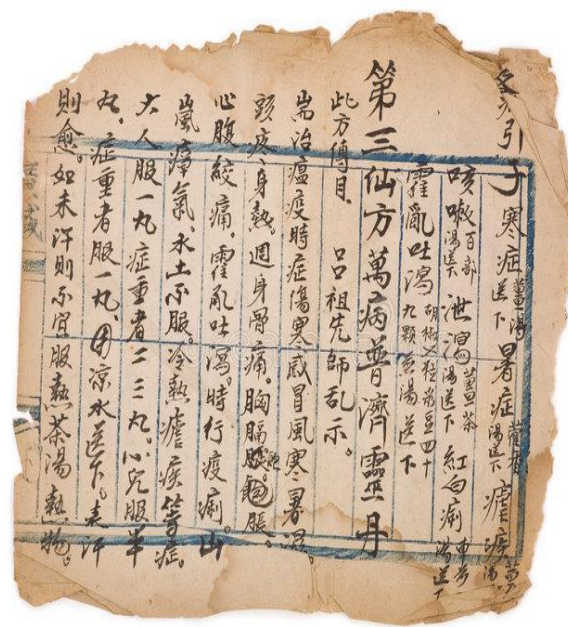 引子 寒症 薑湯送下 暑症 藿香湯送下 瘧疾
咳嗽 百部湯送下 泄瀉 薑茶湯送下 紅白痢 車前湯送下
霍亂吐瀉 胡椒 菉豆四十九顆煎湯送下
第三仙方萬病普濟靈丹
此方傳自 呂祖先師乩示。
耑治瘟疫時症傷寒感冒風寒暑濕。
頭疼、身熱。週身骨痛。胸膈飽脹。
心腹絞痛。霍亂吐瀉。時行疫痢。山
嵐瘴氣、水土不服。冷熱瘧疾等症。
大人服一丸症重者二三丸。小兒服半
丸、症重者服一丸、用凉水送下。表汗
則愈。如未汗則不宜服熱茶湯熱物。